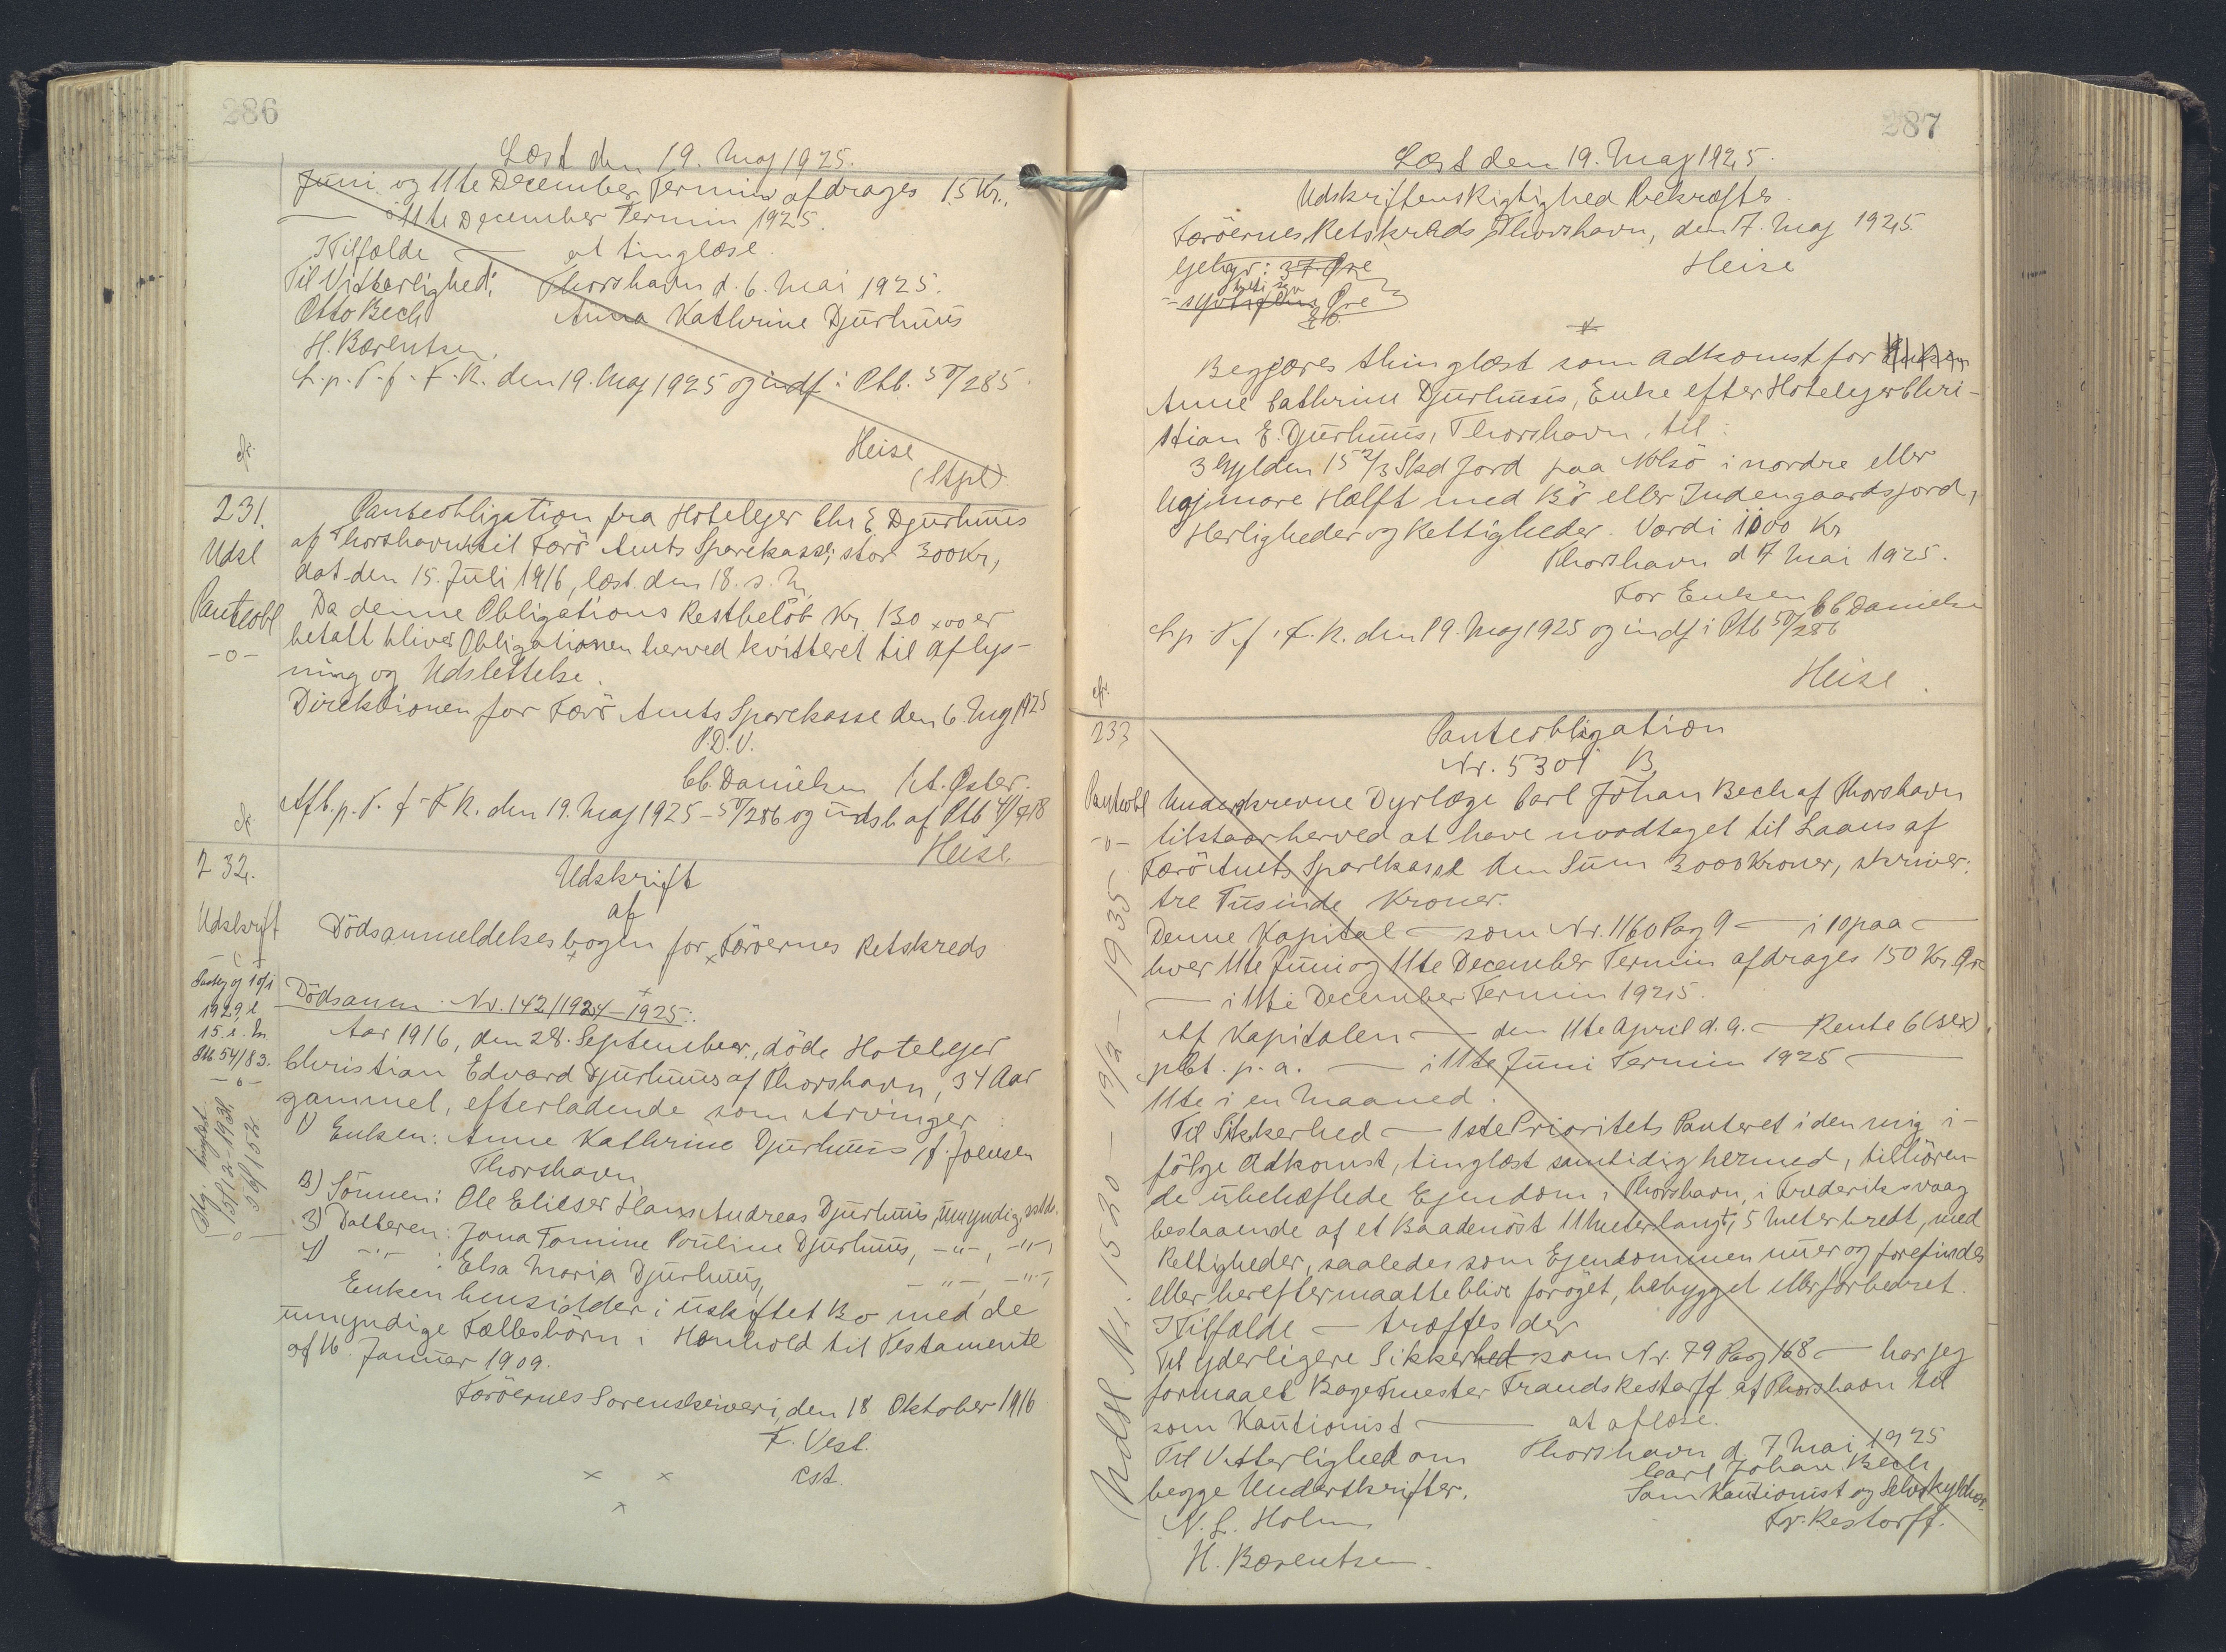 286
Læst den 19. Maj 1925.
Juni og 11te December Termin afdrages 15 Kr.,
— 11te December Termin 1925.
I Tilfælde — at tinglæse.
Til Vitterlighed: Thorshavn d. 6. Mai 1925.
Otto Bech Anna Kathrine Djurhuus
H. Bærentsen.
L. p. V. f. F. R. den 19. Maj 1925 og indf i Ptb. 50/285.
Heise
(Stpl)
cfr.
231. Panteobligation fra Hotelejer Chr E Djurhuus
Udsl af Thorshavn til Færö Amts Sparekasse, stor 300 Kr,
dat den 15. Juli 1916, læst. den 18. s. M,
Panteobl Da denne Obligations Restbelöb Kr. 130 x00 er
-o- betalt bliver Obligationen herved kvitteret til Aflys-
ning og Udslettelse.
Direktionen for Færö Amts Sparekasse den 6. Maj 1925
P.D.V.
CC. Danielsen M. Öster.
Afl. p. V. f. F R. den 19. Maj 1925 - 50/286 og udsl. af Ptb
Heise
cfr.
232. Udskrift
Udskrift af
Dödsanmeldelsesbogen for Færöernes Retskreds
Dödsanm. Nr. 142/1924-1925.
1929, l
15. s. M.
Ptb 54/83.
-o-
Aar 1916, den 28. September, döde Hotelejer
Christian Edvard Djurhuus af Thorshavn, 34 Aar
gammel, efterladende som Arvinger
1) Enken: Anne Kathrine Djurhuus f. Joensen
Thorshavn,
2) Sönnen: Ole Elieser Hans Andreas Djurhuus, Umyndig, sstds.
3) Datteren: Jona Tomine Pouline Djurhuus, -"-, -"-,
4) -"- : Elsa Maria Djurhuus, -"-, -"-,
Enken hensidder i uskiftet Bo med de
umyndige Fællesbörn i Henhold til Testamente
af 16. Januar 1909.
Færöernes Sorenskriveri, den 18 Oktober 1916
F. Vest.
cst.
287
Læst den 19. Maj 1925.
Udskriftens Rigtighed bekræftes.
Færöernes Retskreds Thorshavn, den 7. Maj 1925.
Gebyr: 37 Öre Heise
Öre
Begjæres thinglæst som Adkomst for Enken
Anne Cathrine Djurhuus, Enke efter Hotelejer Chri-
stian E. Djurhuus, Thorshavn, til:
3 Gylden 15 2/3 Skd Jord paa Nolsö i nordre eller
Hajmare Hælft med Bö eller Indengaardsjord,
Herligheder og Rettigheder. Værdi 1100 Kr
Thorshavn d 7 Mai 1925.
For Enken CC Danielsen
L. p. V. f. F. R. den 19. Maj 1925 og indf i Ptb 50/286
Heise.
cfr.
233 Panteobligation
Nr. 5301 B
Panteobl Underskrevne Dyrlæge Carl Johan Bech af Thorshavn
-o- tilstaar herved at have modtaget til Laans af
Færö Amts Sparekasse den Sum 3000 Kroner, skriver:
tre Tusinde Kroner.
Denne Kapital — som Nr. 1160 Pag 9 — i 10 paa —
hver 11te Juni og 11te December Termin afdrages 150 Kr. Öre
— i 11te December Termin 1925.
Af Kapitalen — den 11te April d. A. — Rente 6 (sex)
pCt. p. a. — i 11te Juni Termin 1925 —
11te i en Maaned.
Til Sikkerhed — 1ste Prioritets Panteret i den mig i-
fölge Adkomst, tinglæst samtidig hermed, tilhören-
de ubehæftede Ejendom i Thorshavn, i Frederiksvaag
bestaaende af et Baadenöst 11 Meter langt, 5 Meter bredt, med
Rettigheder, saaledes som Ejendommen nu er og forefindes
eller herefter maatte blive foröget, bebygget eller forbedret.
I Tilfælde — træffes der
Til yderligere Sikkerhed som Nr. 79 Pag 168 — har jeg
formaaet Bagermester Frands Restorff af Thorshavn til
som Kautionist — at aflæse.
Til Vitterlighed om Thorshavn d. 7 Mai 1925
begge Underskrifter. Carl Johan Bech
N. L. Holm Som Kautionist og Selvskyldner.
H. Bærentsen. Fr. Restorff.
Udsl Nr. 1530 - 13/2 - 1935